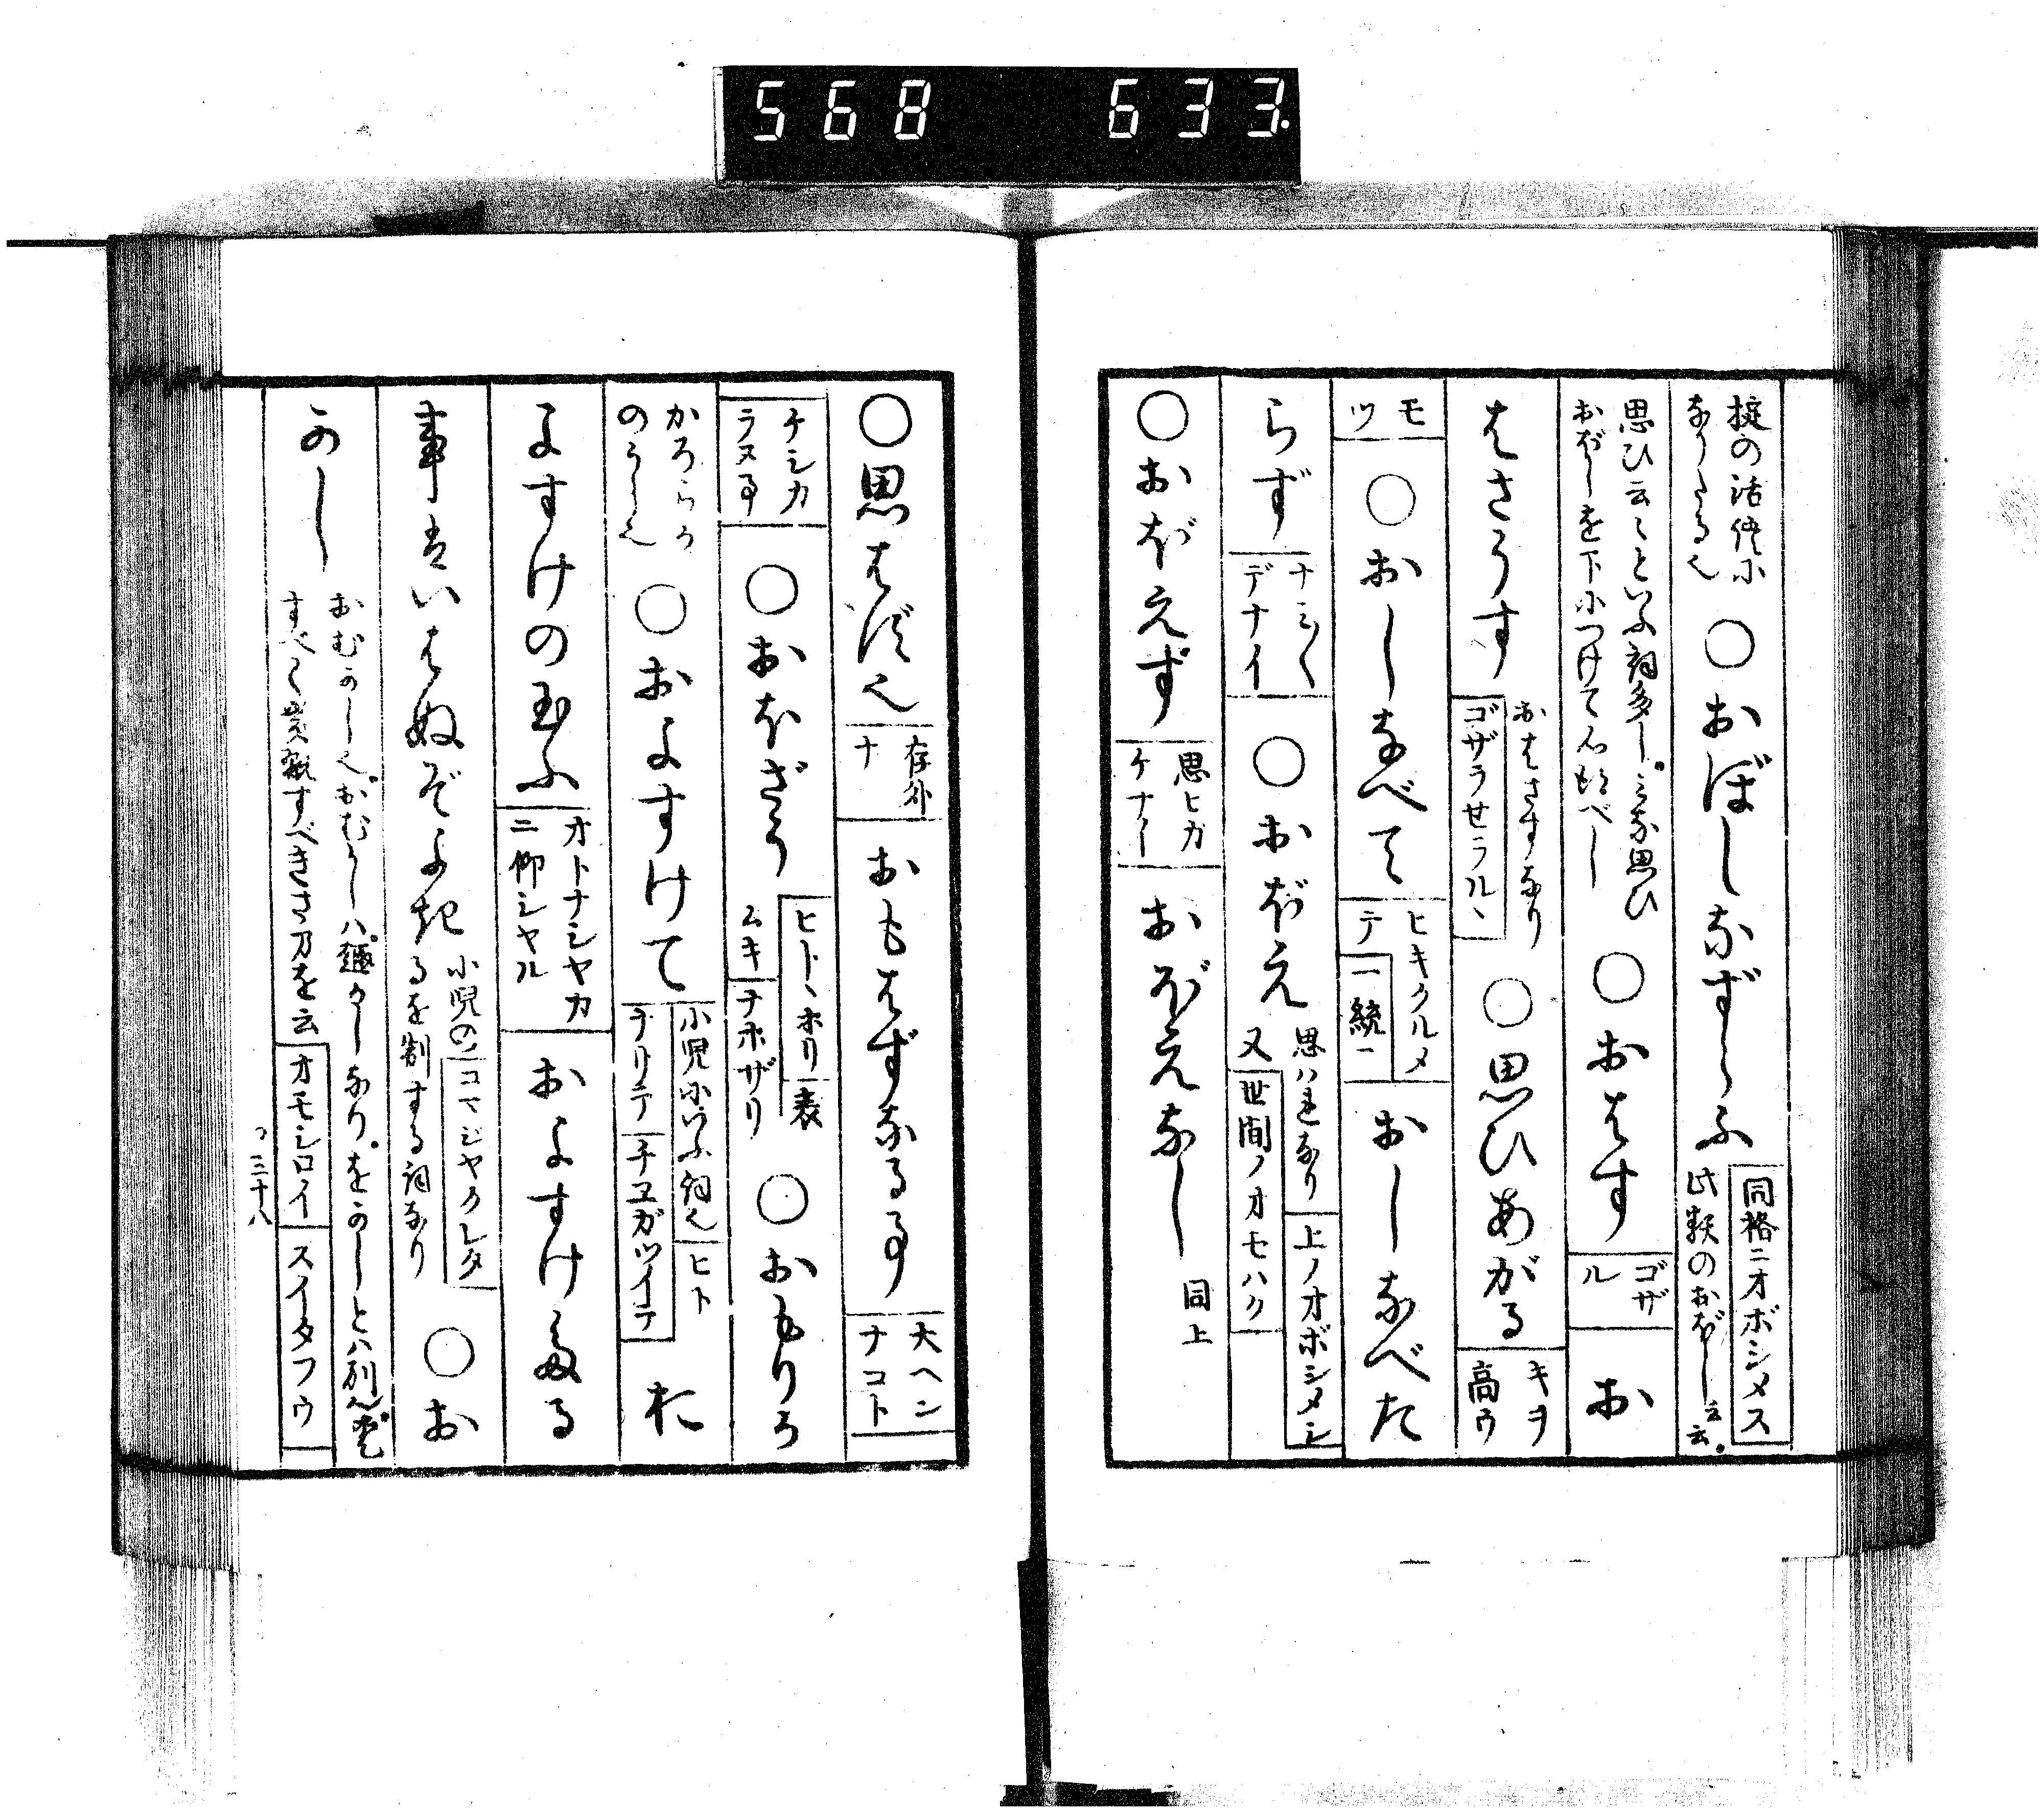 568 633.
掟の活使に
なりたる也
○おぼしなずらふ
同格ニオボシメス
此類のおぼし云云。
思ひ云々といふ詞多し。みな思ひ
おぼしを下につけて心得べし
○おはす
ゴザ
ル
お
はさうす
おはさすなり
ゴザラせラルヽ
○思ひあがる
キヲ
高ウ
モ
ツ
○おしなべて
ヒキクルメ
テ
一統ニ
おしなべた
らず
ナミ〱
デナイ
○おぼえ
思ハれなり
上ノオボシメシ
又
世間ノオモハク
○おぼえず
思ヒガ
ケナー
おぼえなし
同上
○思はず也
存外
ナ
おもはずなる事
大ヘン
ナコト
ケシカ
ラヌ事
○おほざう
ヒトヽホリ
表
ムキ
ナホザリ
○おもりか
かろらか
のうら也
○およすけて
小児にいふ詞也
ヒト
ナリテ
チヱガツイテ
お
よすけの玉ふ
オトナシヤカ
ニ仰シヤル
およすけたる
事はいはぬぞよき
小児の
コマシヤクレタ
るを制する詞なり
○お
かし
おむかし也。おむかしハ
すべて賞翫すべきさまを云
オモシロイ
スイタフウ
つ三十八